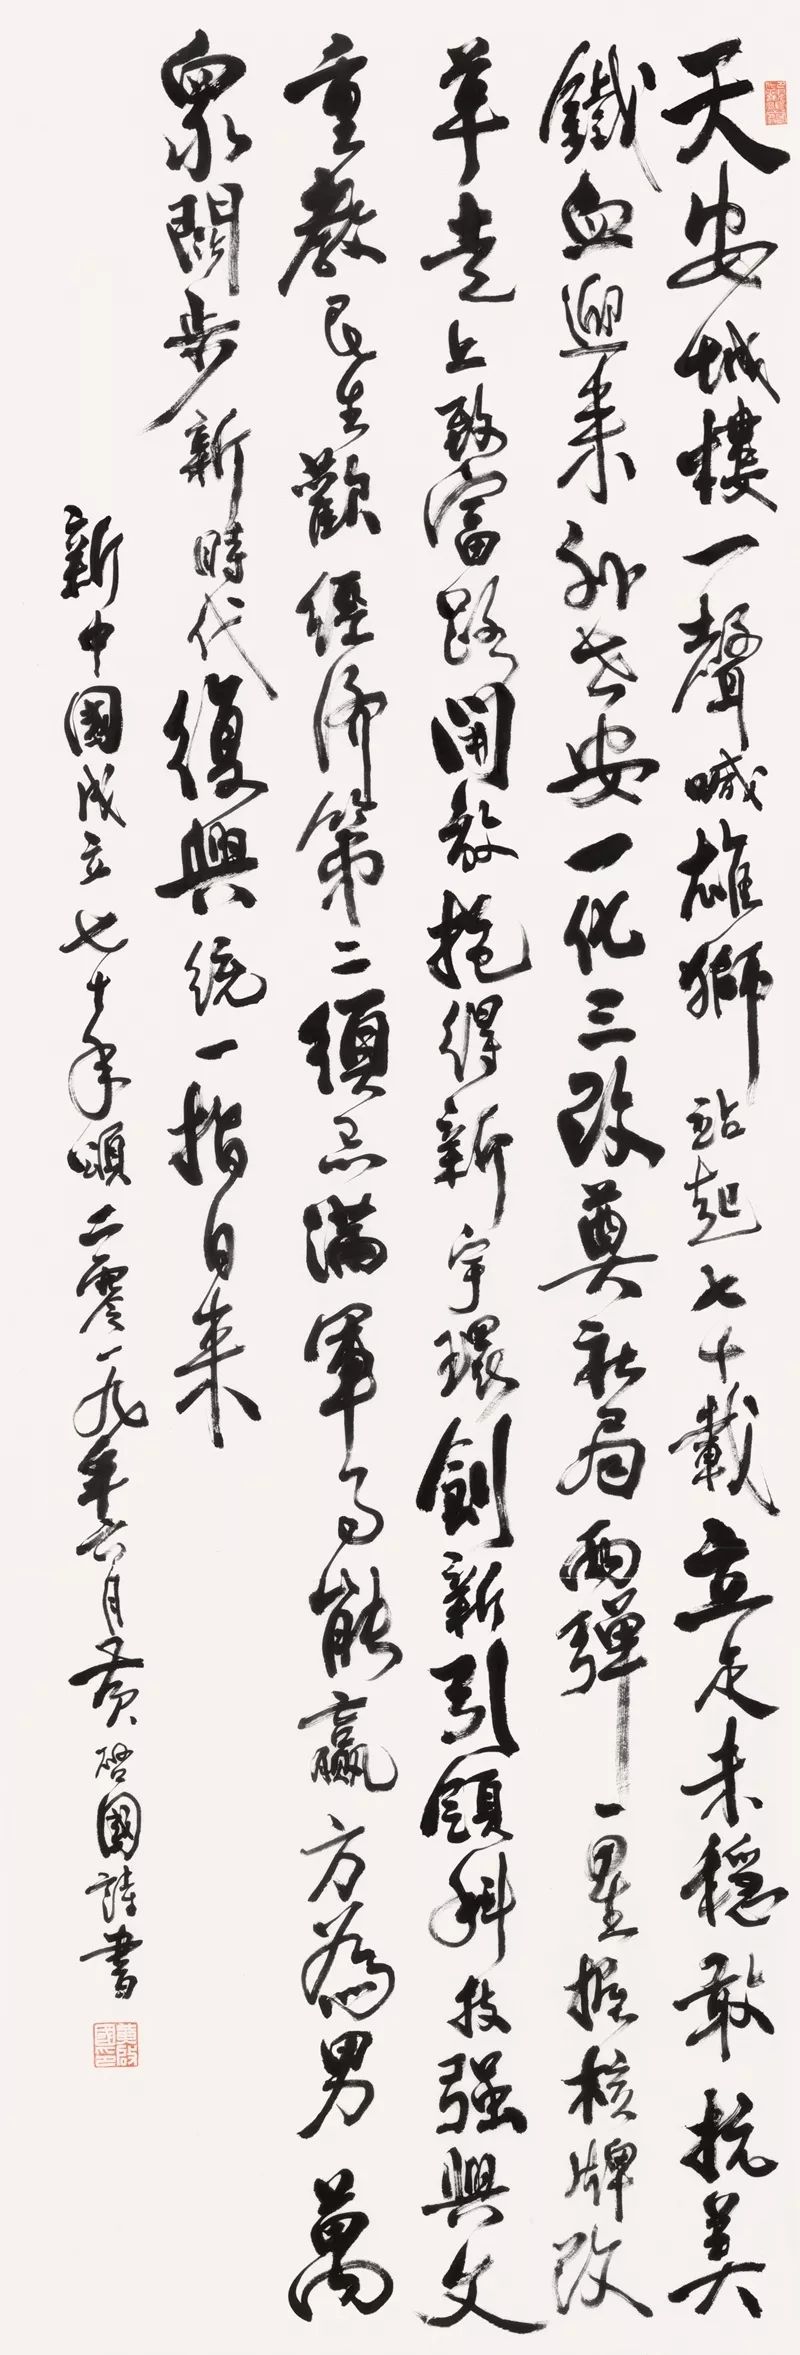 天安城樓一聲喊雄獅站起七十載立足未穩敢抗美
鐵血迎來外長安一化三改奠社局兩彈一星握核牌改
革走上致富路開放攬得新宇環創新引領科技強興文
重教民生歡經濟第二須忌滿軍事能贏方為男萬
眾闊步新時代復興統一指日來
新中國成立七十年頌二零一九年六月黃啓國詩書